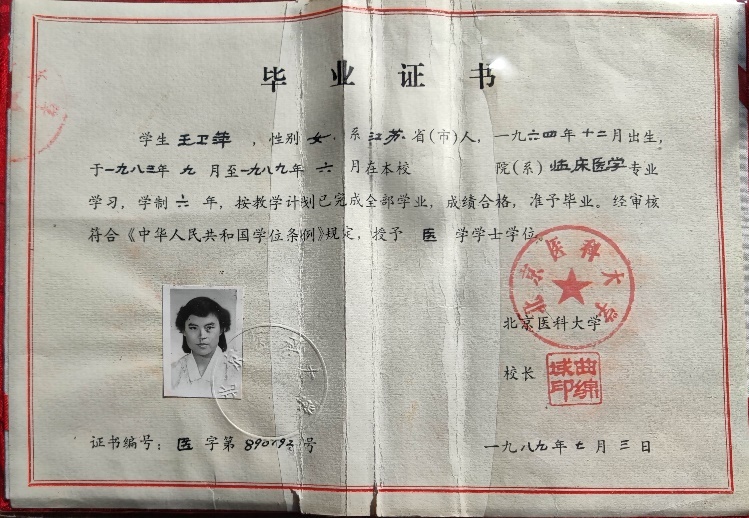 毕业证书
学生 王卫萍 ，性别 女，系 江苏 省(市)人，一九六四年十二月出生，
于一九八三年 九 月至一九八九年 六 月在本校 院(系) 临床医学专业
学习，学制 六 年，按教学计划已完成全部学业，成绩合格，准予毕业。经审核
符合《中华人民共和国学位条例》规定，授予 医 学学士学位。
北京医科大学
北京医科大学
校长 曲绵域印
证书编号：医 字第 号
一九八九年七月三日